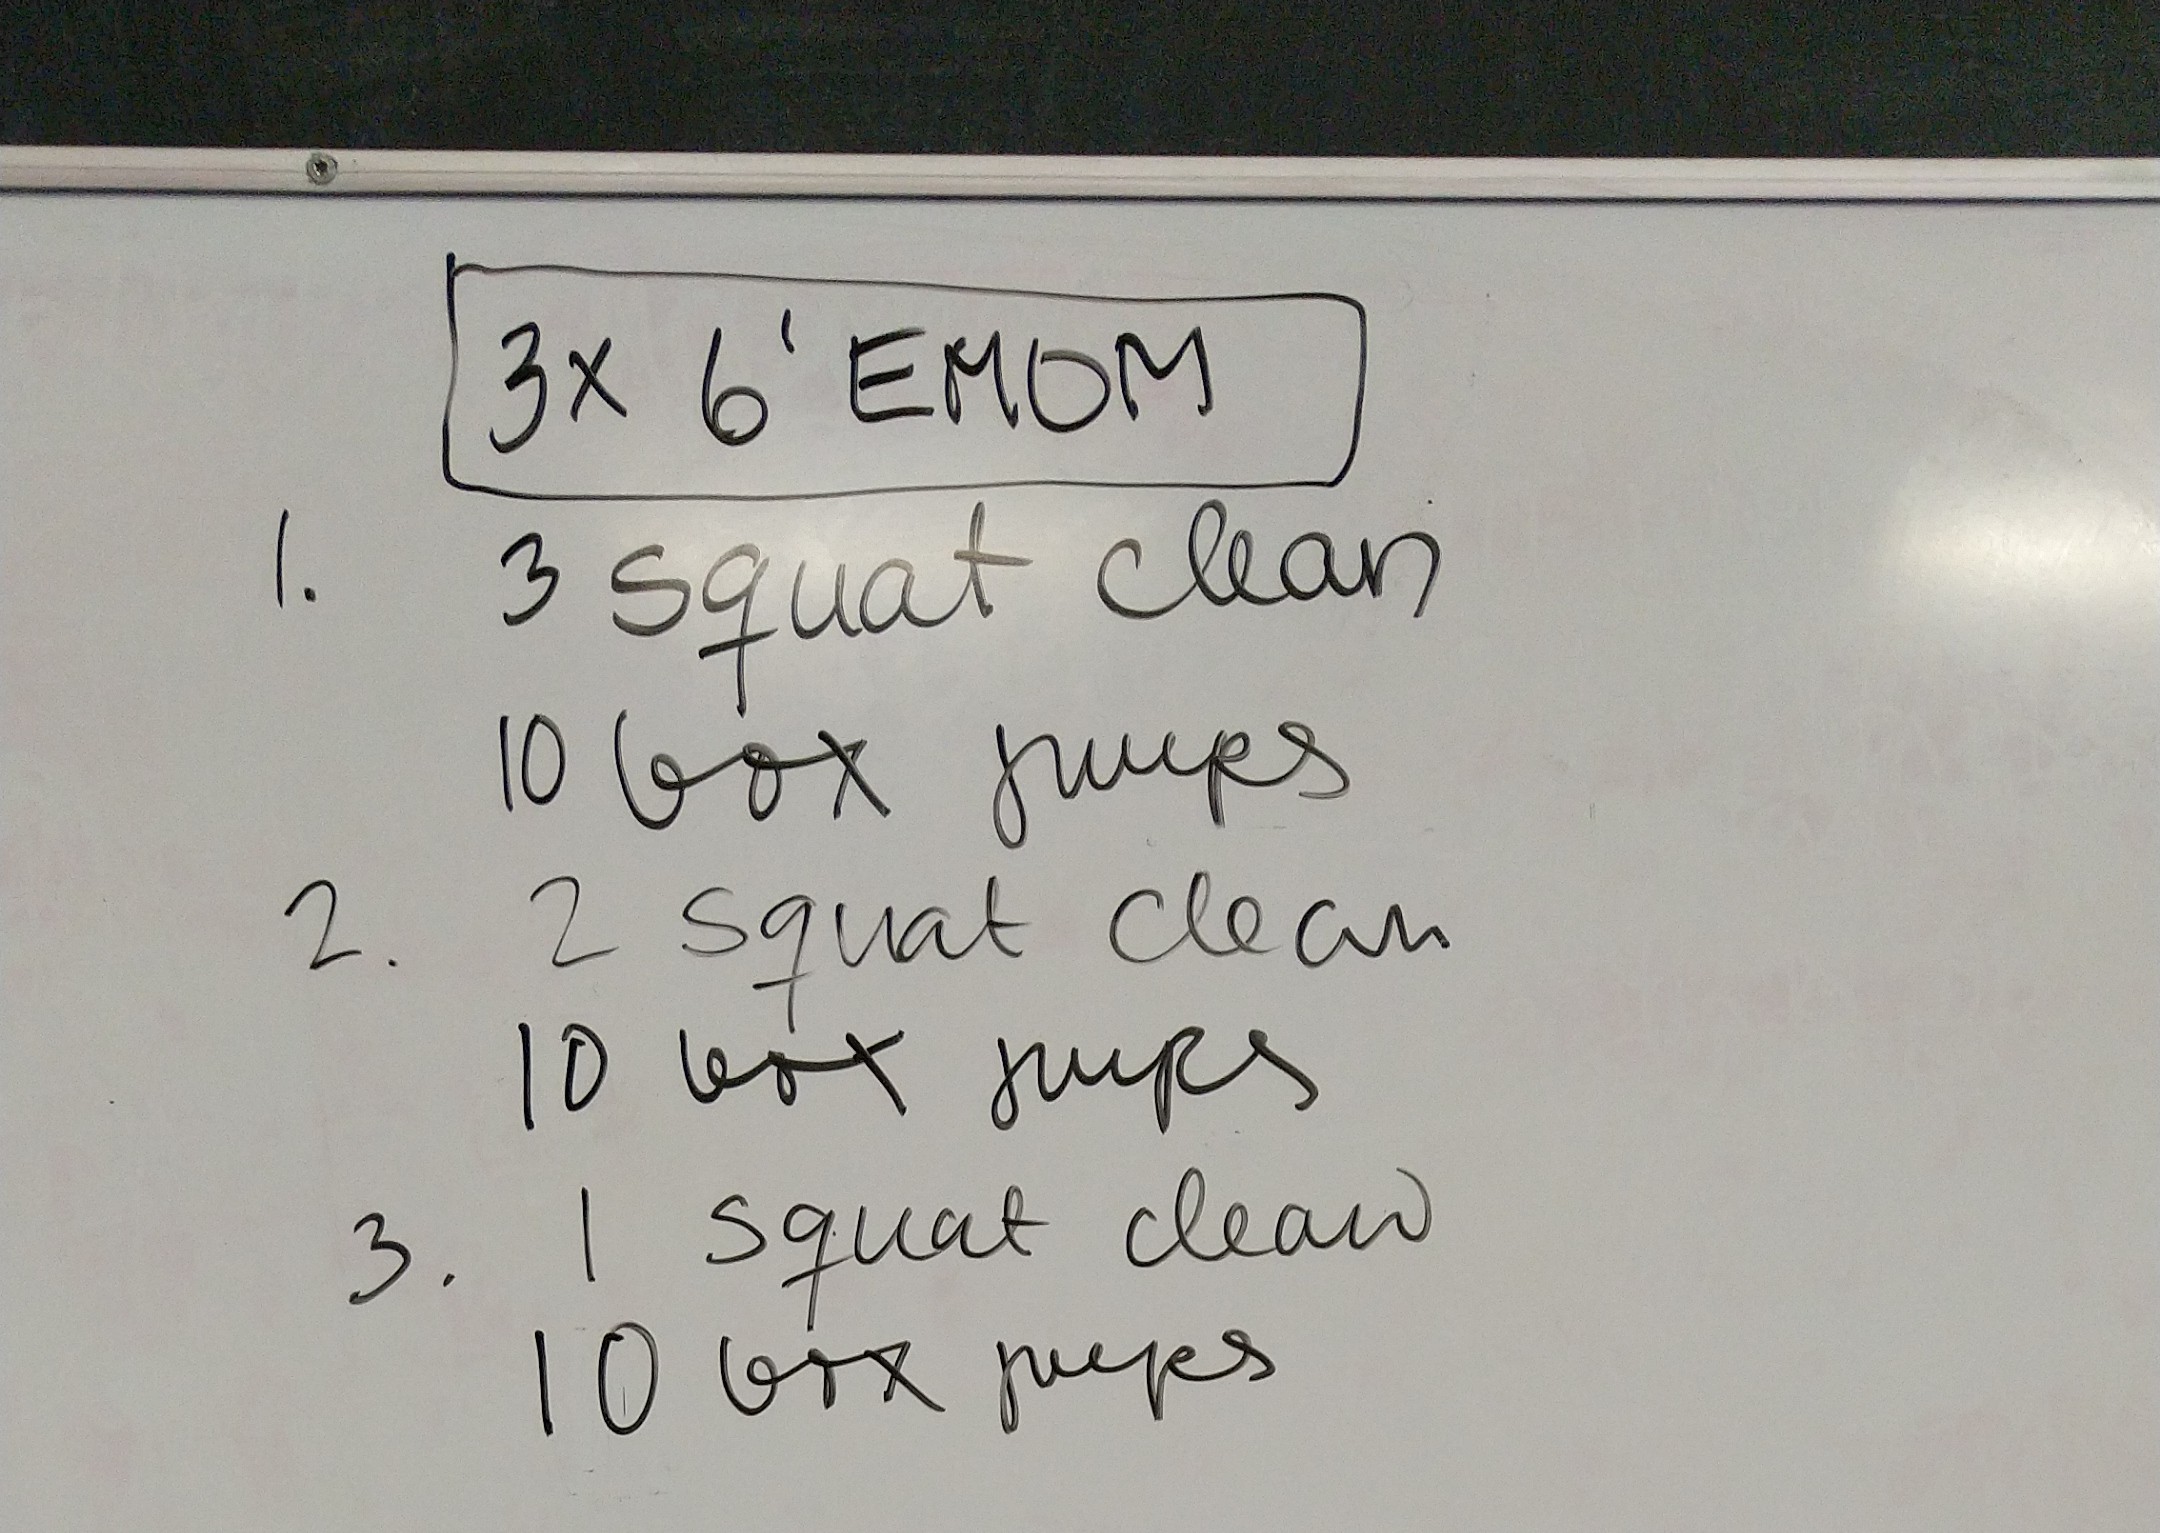 3x 6' EMOM
1. 3 squat clean
10 box jumps
2. 2 squat clean
10 box jumps
3. 1 squat clean
10 box jumps